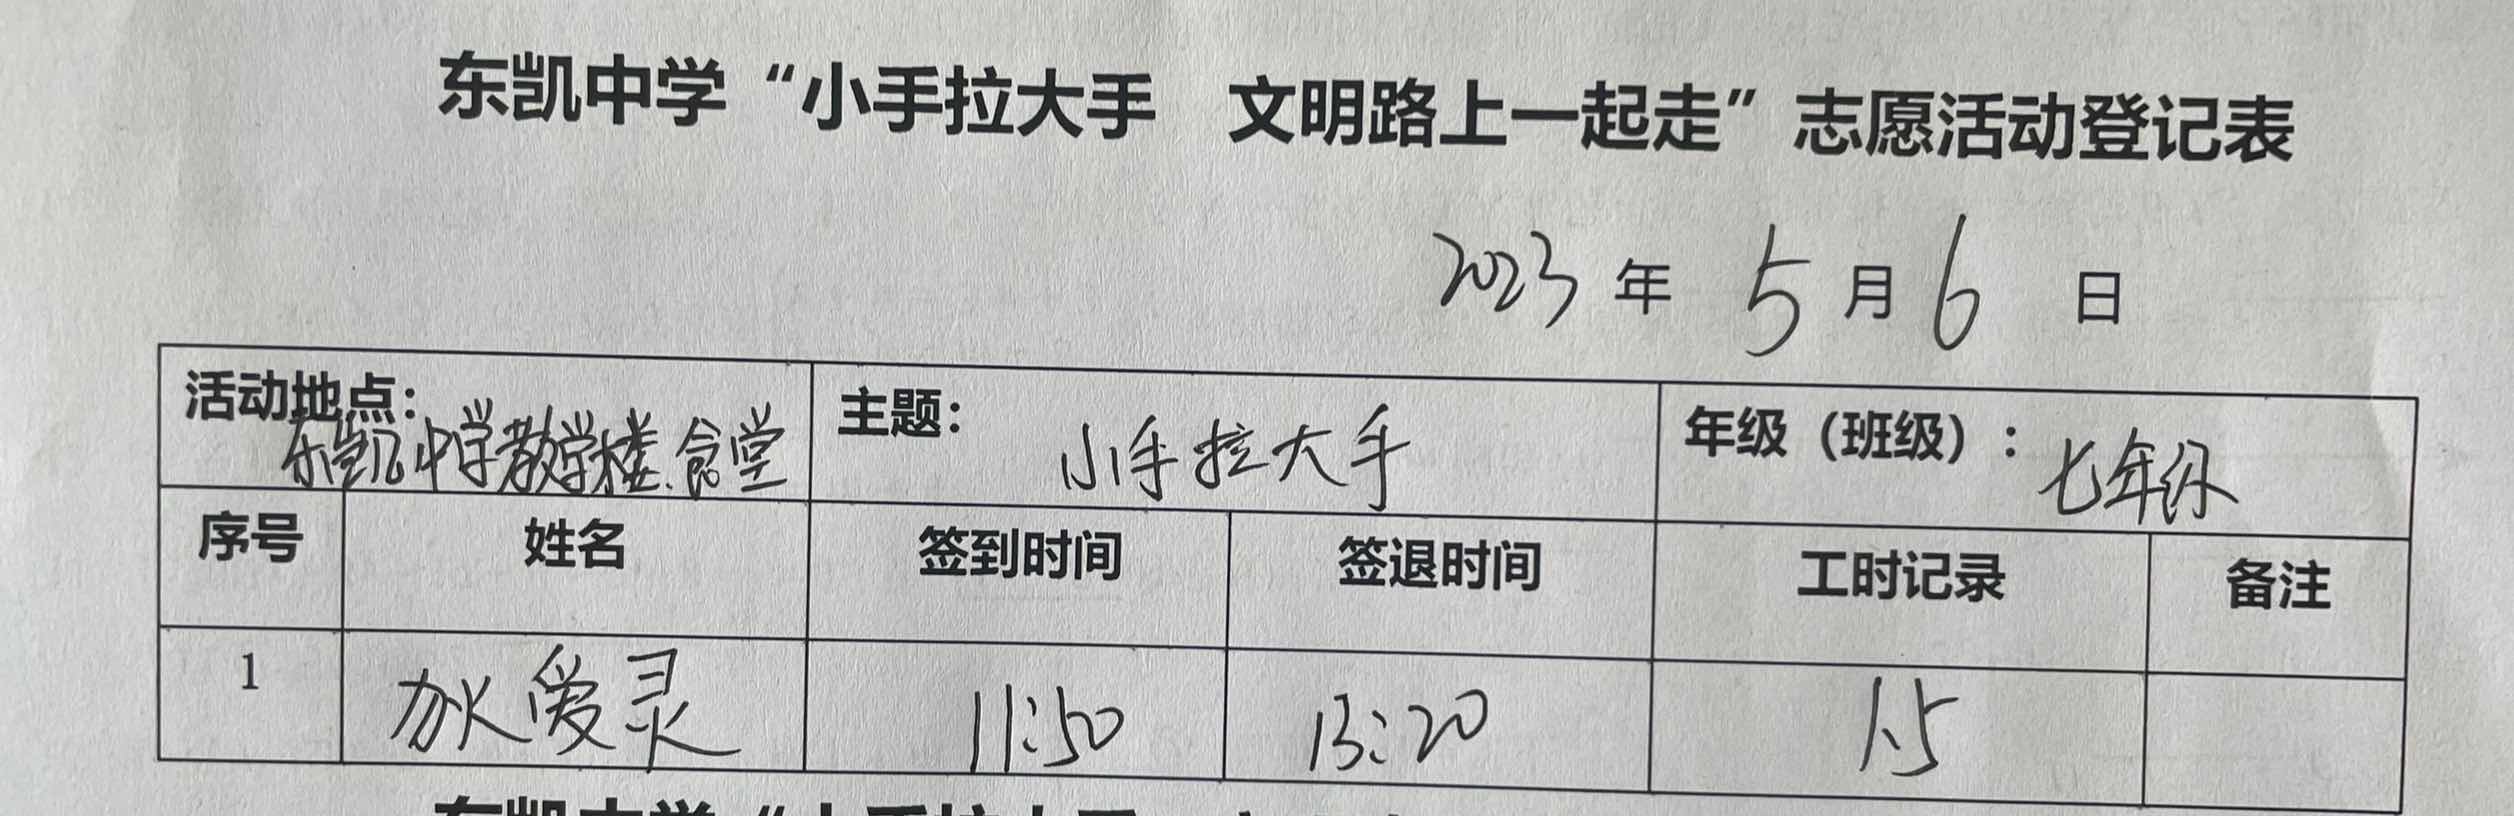 东凯中学“小手拉大手 文明路上一起走”志愿活动登记表
2023 年 5 月 6 日
活动地点: 东凯中学教学楼、食堂 主题: 小手拉大手 年级（班级）: 七年级
序号 姓名 签到时间 签退时间 工时记录 备注
1 爱灵 11:50 13:20 1.5